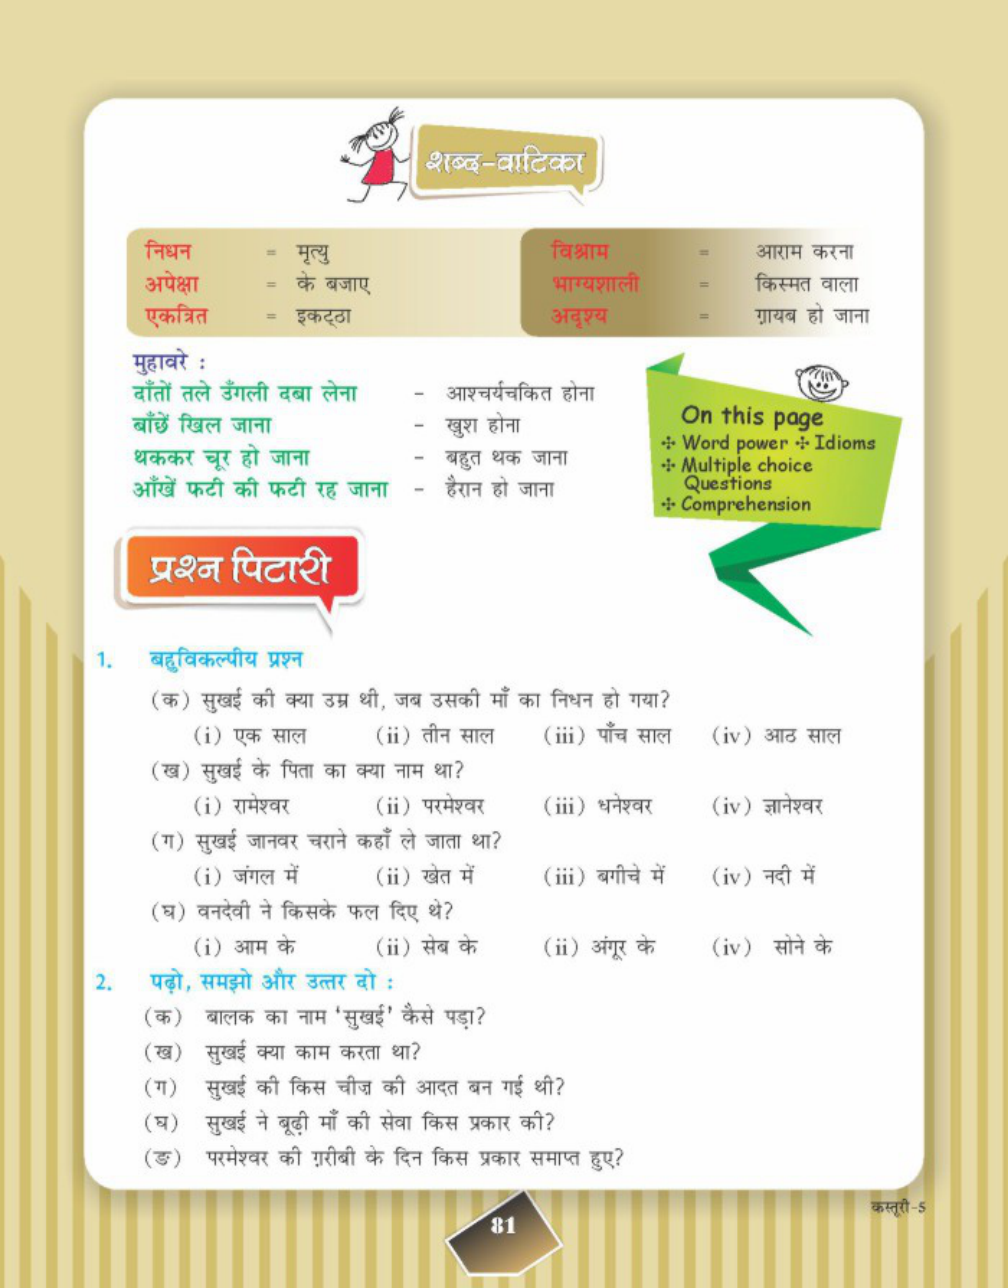 शब्द-वाटिका
निधन = मृत्यु
अपेक्षा = के बजाए
एकत्रित = इकट्ठा
विश्राम = आराम करना
भाग्यशाली = किस्मत वाला
अदृश्य = ग़ायब हो जाना
मुहावरे :
दाँतों तले उँगली दबा लेना – आश्चर्यचकित होना
बाँछें खिल जाना – खुश होना
थककर चूर हो जाना – बहुत थक जाना
आँखें फटी की फटी रह जाना – हैरान हो जाना
On this page
✣ Word power ✣ Idioms
✣ Multiple choice
Questions
✣ Comprehension
प्रश्न पिटारी
1. बहुविकल्पीय प्रश्न
(क) सुखई की क्या उम्र थी, जब उसकी माँ का निधन हो गया?
(i) एक साल (ii) तीन साल (iii) पाँच साल (iv) आठ साल
(ख) सुखई के पिता का क्या नाम था?
(i) रामेश्वर (ii) परमेश्वर (iii) धनेश्वर (iv) ज्ञानेश्वर
(ग) सुखई जानवर चराने कहाँ ले जाता था?
(i) जंगल में (ii) खेत में (iii) बगीचे में (iv) नदी में
(घ) वनदेवी ने किसके फल दिए थे?
(i) आम के (ii) सेब के (ii) अंगूर के (iv) सोने के
2. पढ़ो, समझो और उत्तर दो :
(क) बालक का नाम ‘सुखई’ कैसे पड़ा?
(ख) सुखई क्या काम करता था?
(ग) सुखई की किस चीज़ की आदत बन गई थी?
(घ) सुखई ने बूढ़ी माँ की सेवा किस प्रकार की?
(ङ) परमेश्वर की ग़रीबी के दिन किस प्रकार समाप्त हुए?
कस्तूरी-5
81